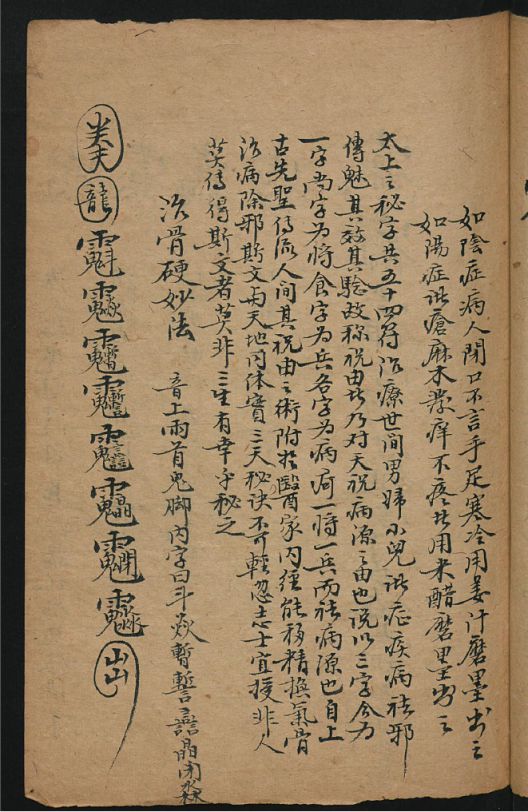 如陰症病人閉口不言手足寒冷用姜汁磨墨书之
如陽症諸瘡麻木發痒不疼者用米醋磨墨书之
太上之秘字共五十四符治療世間男婦小兒諸症疾病祛邪
傳魅其效其驗故称祝由者乃对天祝病源之由也説以三字合为
一字尚字为将食字为兵各字为病符一将一兵而祛病源也自上
古先聖傳流人间其祝由之術附於醫家内經能移精換氣骨
治病除邪斯文与天地同体實三天秘诀不可輕忽志士宜授非人
莫傳得斯文者莫非三生有幸乎秘之
治骨硬妙法
音上雨首鬼脚内字曰斗焱暫誓譶晶閉淼
龍